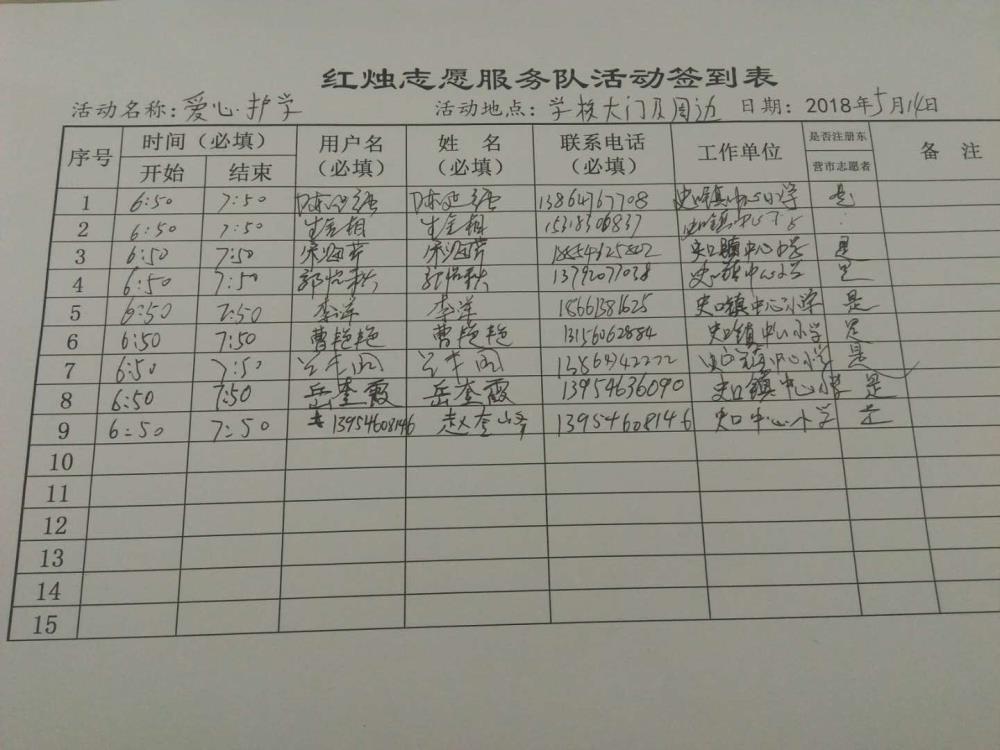 红烛志愿服务队活动签到表
活动名称：爱心护学 活动地点：学校大门及周边 日期：2018年5月14日
序号 时间（必填） 开始 结束 用户名（必填） 姓名（必填） 联系电话（必填） 工作单位 是否注册东营市志愿者 备注
1 6:50 7:50 13864767708 史口镇中心小学 是
2 6:50 7:50 15318306837 史口镇中心小学
3 6:50 7:50 宋海芹 宋海芹 史口镇中心小学 是
4 6:50 7:50 13792077038 史口镇中心小学 是
5 6:50 7:50 李洋 李洋 18661381625 史口镇中心小学 是
6 6:50 7:50 曹艳艳 曹艳艳 13156062884 史口镇中心小学 是
7 6:50 7:50 史口镇中心小学 是
8 6:50 7:50 岳奎霞 岳奎霞 13954636090 史口镇中心小学 是
9 6:50 7:50 13954608146 赵奎峰 13954608146 史口中心小学 是
10
11
12
13
14
15